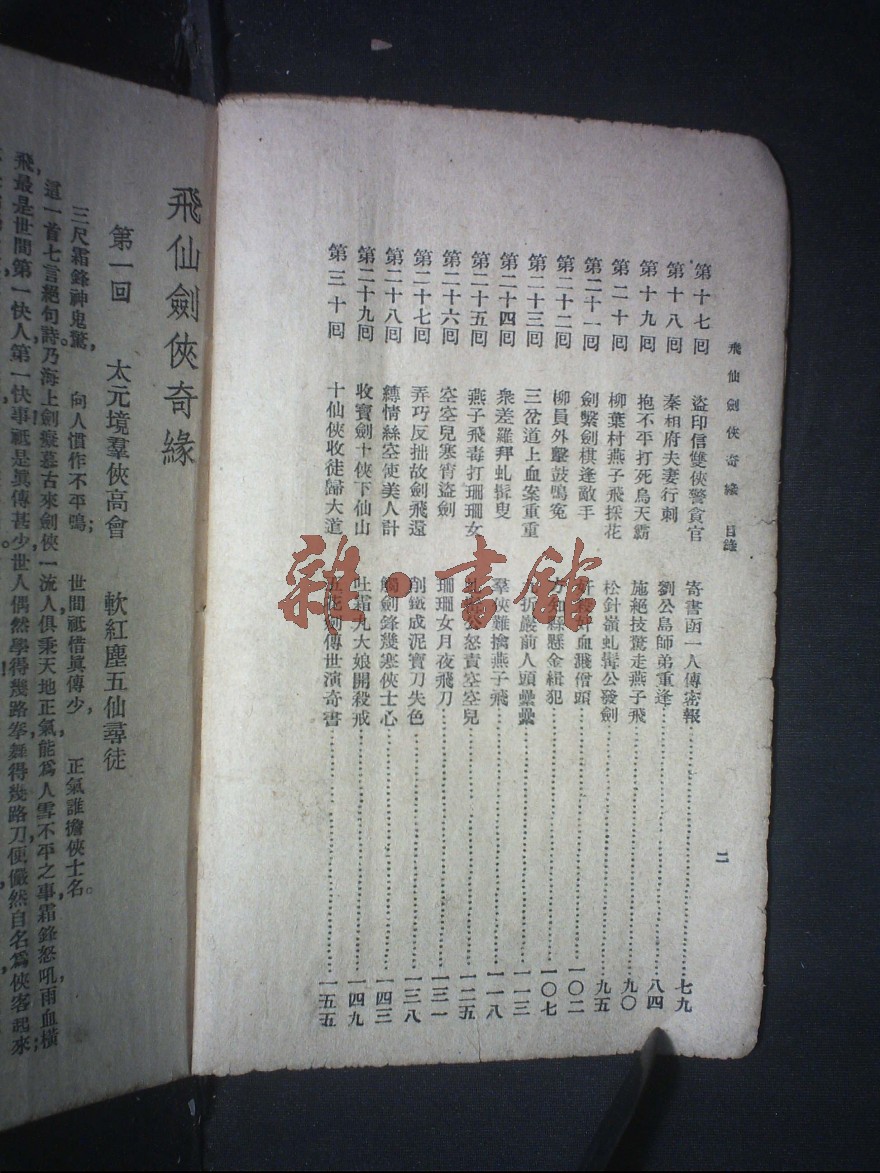 飛仙劍俠奇緣 目錄
二
第十七囘 盜印信雙俠警貪官 寄書函一人傳密報……七九
第十八囘 秦相府夫妻行刺 劉公島師弟重逢……八四
第十九囘 抱不平打死烏天霸 施絕技驚走燕子飛……九〇
第二十囘 柳葉村燕子飛採花 松針嶺虬髯公發劍……九五
第二十一囘 劍繫劍棋逢敵手 奸血濺僧頭……一〇二
第二十二囘 柳員外擊鼓鳴寃 方知縣懸金緝犯……一〇七
第二十三囘 三岔道上血案重重 折巖前人頭纍纍……一一三
第二十四囘 衆差羅拜虬髯叟 羣俠難擒燕子飛……一一八
第二十五囘 燕子飛毒打珊珊女 虬髯公怒責空空兒……一二五
第二十六囘 空空兒寒宵盜劍 珊珊女月夜飛刀……一三一
第二十七囘 弄巧反拙故劍飛還 削鐵成泥寶刀失色……一三八
第二十八囘 縛情絲空使美人計 觸劍鋒幾寒俠士心……一四三
第二十九囘 收寶劍十俠下仙山 吐霜丸大娘開殺戒……一四九
第三十囘 十仙俠收徒歸大道 五花劍傳世演奇書……一五五
雜·書館
飛仙劍俠奇緣
第一回 太元境羣俠高會 軟紅塵五仙尋徒
三尺霜鋒神鬼驚，向人慣作不平鳴；世間祇惜眞傳少，正氣誰擔俠士名。
這一首七言絕句詩乃海上劍癡慕古來劍俠一流人俱秉天地正氣能爲人雪不平之事，霜鋒怒吼，雨血橫
飛，最是世間第一快人第一快事。祇是眞傳甚少，世人偶然學得幾路拳，舞得幾路刀，便儼然自名爲俠客起來；